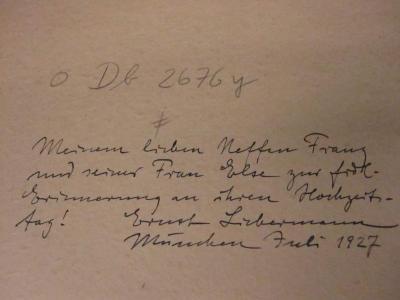 O Db 2676 y
Meinem lieben Neffen Franz
und seiner Frau Else zur frdl.
Erinnerung an ihren Hochzeits-
tag! Ernst Liebermann
München Juli 1927